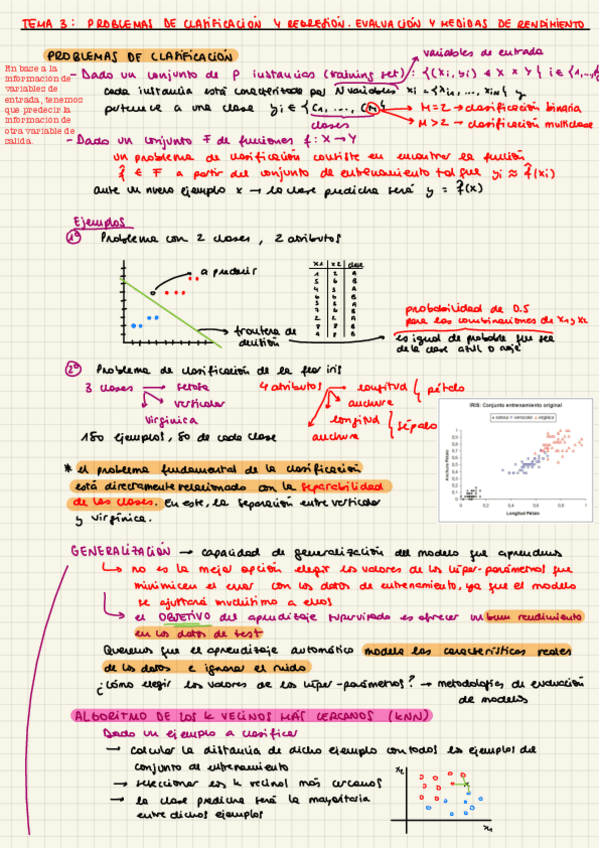 TEMA 3: PROBLEMAS DE CLASIFICACIÓN Y REGRESIÓN. EVALUACIÓN Y MEDIDAS DE RENDIMIENTO
PROBLEMAS DE CLASIFICACIÓN
variables de entrada
En base a la
información de
variables de
entrada, tenemos
que predecir la
información de
otra variable de
salida.
- Dado un conjunto de P instancias (training set): {(xi, yi) ∈ X x Y} i ∈ {1,...,
cada instancia está caracterizada por N variables xi = (xi1, ..., xin) y
pertenece a una clase yi ∈ {C1, ..., CM}
M=2 → clasificación binaria
M>2 → clasificación multiclase
clases
- Dado un conjunto F de funciones f: X → Y
un problema de clasificación consiste en encontrar la función
f̂ ∈ F a partir del conjunto de entrenamiento tal que yi ≈ f̂(xi)
ante un nuevo ejemplo x → la clase predicha será y = f̂(x)
Ejemplos
1º Problema con 2 clases, 2 atributos
a predecir
x1 x2 clase
frontera de
decisión
probabilidad de 0.5
para las combinaciones de x1 y x2
es igual de probable que sea
de la clase azul o roja
2º Problema de clasificación de la flor iris
3 clases → setosa
versicolor
virginica
4 atributos → longitud
anchura
pétalo
longitud
anchura
sépalo
150 ejemplos, 50 de cada clase
IRIS: Conjunto entrenamiento original
setosa versicolor virginica
Anchura Pétalo
Longitud Pétalo
* el problema fundamental de la clasificación
está directamente relacionado con la separabilidad
de las clases. En este, la separación entre versicolor
y virginica.
GENERALIZACIÓN → capacidad de generalización del modelo que aprendemos
→ no es la mejor opción elegir los valores de los híper-parámetros que
minimicen el error con los datos de entrenamiento, ya que el modelo
se ajustará muchísimo a ellos
→ el OBJETIVO del aprendizaje supervisado es ofrecer un buen rendimiento
en los datos de test
Queremos que el aprendizaje automático modele las características reales
de los datos e ignorar el ruido
¿Cómo elegir los valores de los híper-parámetros? → metodologías de evaluación
de modelos
ALGORITMO DE LOS K VECINOS MÁS CERCANOS (KNN)
Dado un ejemplo a clasificar
→ calcular la distancia de dicho ejemplo con todos los ejemplos del
conjunto de entrenamiento
→ seleccionar los k vecinos más cercanos
→ la clase predicha será la mayoritaria
entre dichos ejemplos
x2
x1